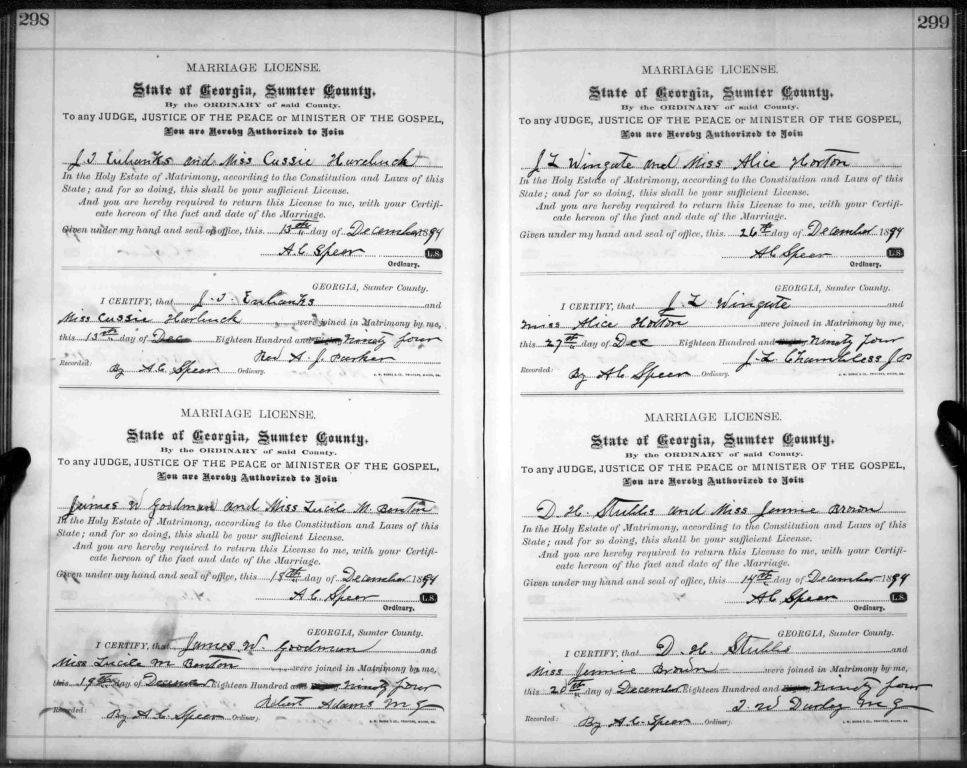 298
MARRIAGE LICENSE.
State of Georgia, Sumter County.
By the ORDINARY of said County.
To any JUDGE, JUSTICE OF THE PEACE or MINISTER OF THE GOSPEL,
You are Hereby Authorized to Join
J. T. Eubanks and Miss Cassie Harbuck
In the Holy Estate of Matrimony, according to the Constitution and Laws of this
State; and for so doing, this shall be your sufficient License.
And you are hereby required to return this License to me, with your Certifi-
cate hereon of the fact and date of the Marriage.
Given under my hand and seal of office, this 13th day of December 1894
A C Speer L.S.
Ordinary.
GEORGIA, Sumter County.
I CERTIFY, that J. T. Eubanks and
Miss Cassie Harbuck were joined in Matrimony by me,
this 13th day of Dec Eighteen Hundred and Ninety four
Rev A. J. Parker
Recorded: By A. C. Speer Ordinary.
MARRIAGE LICENSE.
State of Georgia, Sumter County.
By the ORDINARY of said County.
To any JUDGE, JUSTICE OF THE PEACE or MINISTER OF THE GOSPEL,
You are Hereby Authorized to Join
James W Goodman and Miss Lucile M. Benton
In the Holy Estate of Matrimony, according to the Constitution and Laws of this
State; and for so doing, this shall be your sufficient License.
And you are hereby required to return this License to me, with your Certifi-
cate hereon of the fact and date of the Marriage.
Given under my hand and seal of office, this day of December 1894
A C. Speer L.S.
Ordinary.
GEORGIA, Sumter County.
I CERTIFY, that James W. Goodman and
Miss Lucile M Benton were joined in Matrimony by me,
this 19th day of December Eighteen Hundred and Ninety four
Robert Adams M G
Recorded: By A. C. Speer Ordinary.
299
MARRIAGE LICENSE.
State of Georgia, Sumter County.
By the ORDINARY of said County.
To any JUDGE, JUSTICE OF THE PEACE or MINISTER OF THE GOSPEL,
You are Hereby Authorized to Join
J L Wingate and Miss Alice Horton
In the Holy Estate of Matrimony, according to the Constitution and Laws of this
State; and for so doing, this shall be your sufficient License.
And you are hereby required to return this License to me, with your Certifi-
cate hereon of the fact and date of the Marriage.
Given under my hand and seal of office, this 26th day of December 1894
A C Speer L.S.
Ordinary.
GEORGIA, Sumter County.
I CERTIFY, that J L Wingate and
Miss Alice Horton were joined in Matrimony by me,
this 27th day of Dec Eighteen Hundred and Ninety four
J. L Chambless J P
Recorded: By A C Speer Ordinary.
MARRIAGE LICENSE.
State of Georgia, Sumter County.
By the ORDINARY of said County.
To any JUDGE, JUSTICE OF THE PEACE or MINISTER OF THE GOSPEL,
You are Hereby Authorized to Join
D. H. Stubbs and Miss Jennie Brown
In the Holy Estate of Matrimony, according to the Constitution and Laws of this
State; and for so doing, this shall be your sufficient License.
And you are hereby required to return this License to me, with your Certifi-
cate hereon of the fact and date of the Marriage.
Given under my hand and seal of office, this 14th day of December 1894
A C. Speer L.S.
Ordinary.
GEORGIA, Sumter County.
I CERTIFY, that D. H. Stubbs and
Miss Jennie Brown were joined in Matrimony by me,
this day of December Eighteen Hundred and Ninety four
M G
Recorded: By A. C. Speer Ordinary.